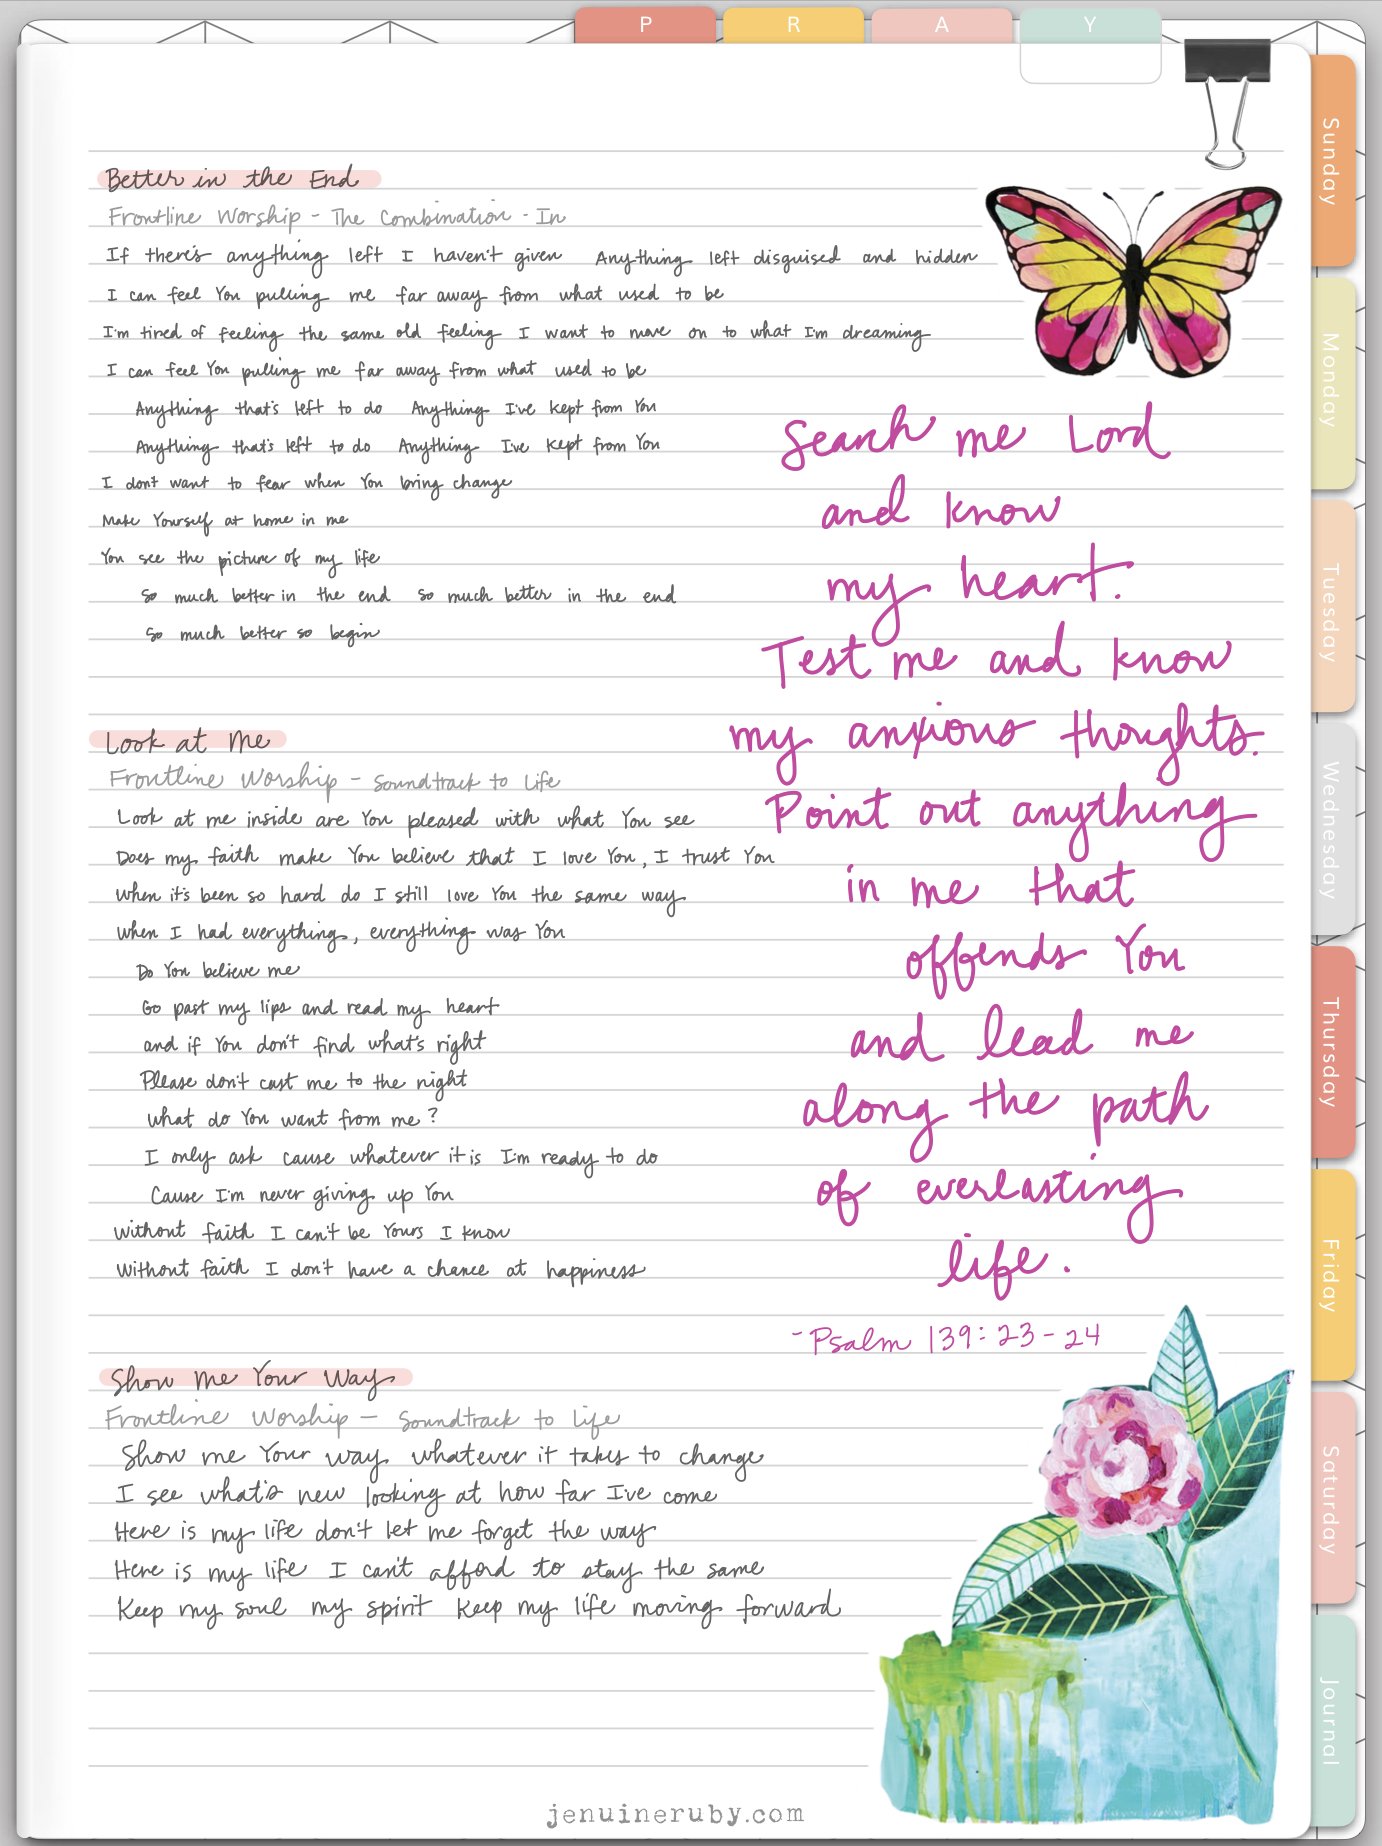 P R A Y
Better in the End
Frontline Worship - The Combination - In
If there's anything left I haven't given Anything left disguised and hidden
I can feel You pulling me far away from what used to be
I'm tired of feeling the same old feeling I want to move on to what I'm dreaming
I can feel You pulling me far away from what used to be
Anything that's left to do Anything I've kept from You
Anything that's left to do Anything I've kept from You
I don't want to fear when You bring change
Make Yourself at home in me
You see the picture of my life
So much better in the end so much better in the end
So much better so begin
Look at Me
Frontline Worship - Soundtrack to Life
Look at me inside are You pleased with what You see
Does my faith make You believe that I love You, I trust You
When it's been so hard do I still love You the same way
When I had everything, everything was You
Do You believe me
Go past my lips and read my heart
and if You don't find what's right
Please don't cast me to the night
What do You want from me?
I only ask cause whatever it is I'm ready to do
Cause I'm never giving up You
Without faith I can't be Yours I know
Without faith I don't have a chance at happiness
Show Me Your Way
Frontline Worship - Soundtrack to Life
Show me Your way whatever it takes to change
I see what's new looking at how far I've come
Here is my life don't let me forget the way
Here is my life I can't afford to stay the same
Keep my soul my spirit keep my life moving forward
Search me Lord
and know
my heart.
Test me and know
my anxious thoughts.
Point out anything
in me that
offends You
and lead me
along the path
of everlasting
life.
- Psalm 139:23-24
Sunday
Monday
Tuesday
Wednesday
Thursday
Friday
Saturday
Journal
jenuineruby.com